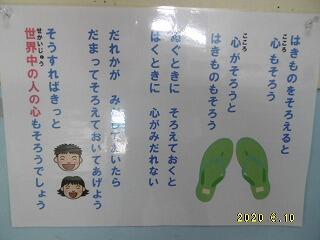 はきものをそろえると
心もそろう
こころ
心がそろうと
こころ
はきものもそろう
ぬぐときに そろえておくと
はくときに 心がみだれない
だれかが みだしておいたら
だまってそろえておいてあげよう
そうすればきっと
世界中の人の心もそろうでしょう
せかいじゅう
2020 6.10